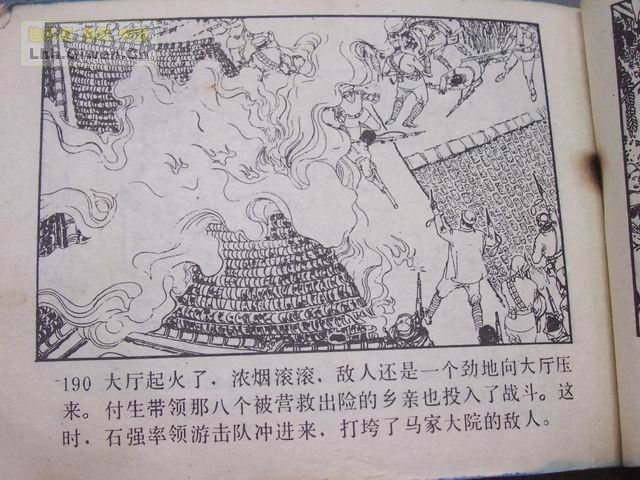 190 大厅起火了，浓烟滚滚，敌人还是一个劲地向大厅压
来。付生带领那八个被营救出险的乡亲也投入了战斗。这
时，石强率领游击队冲进来，打垮了马家大院的敌人。